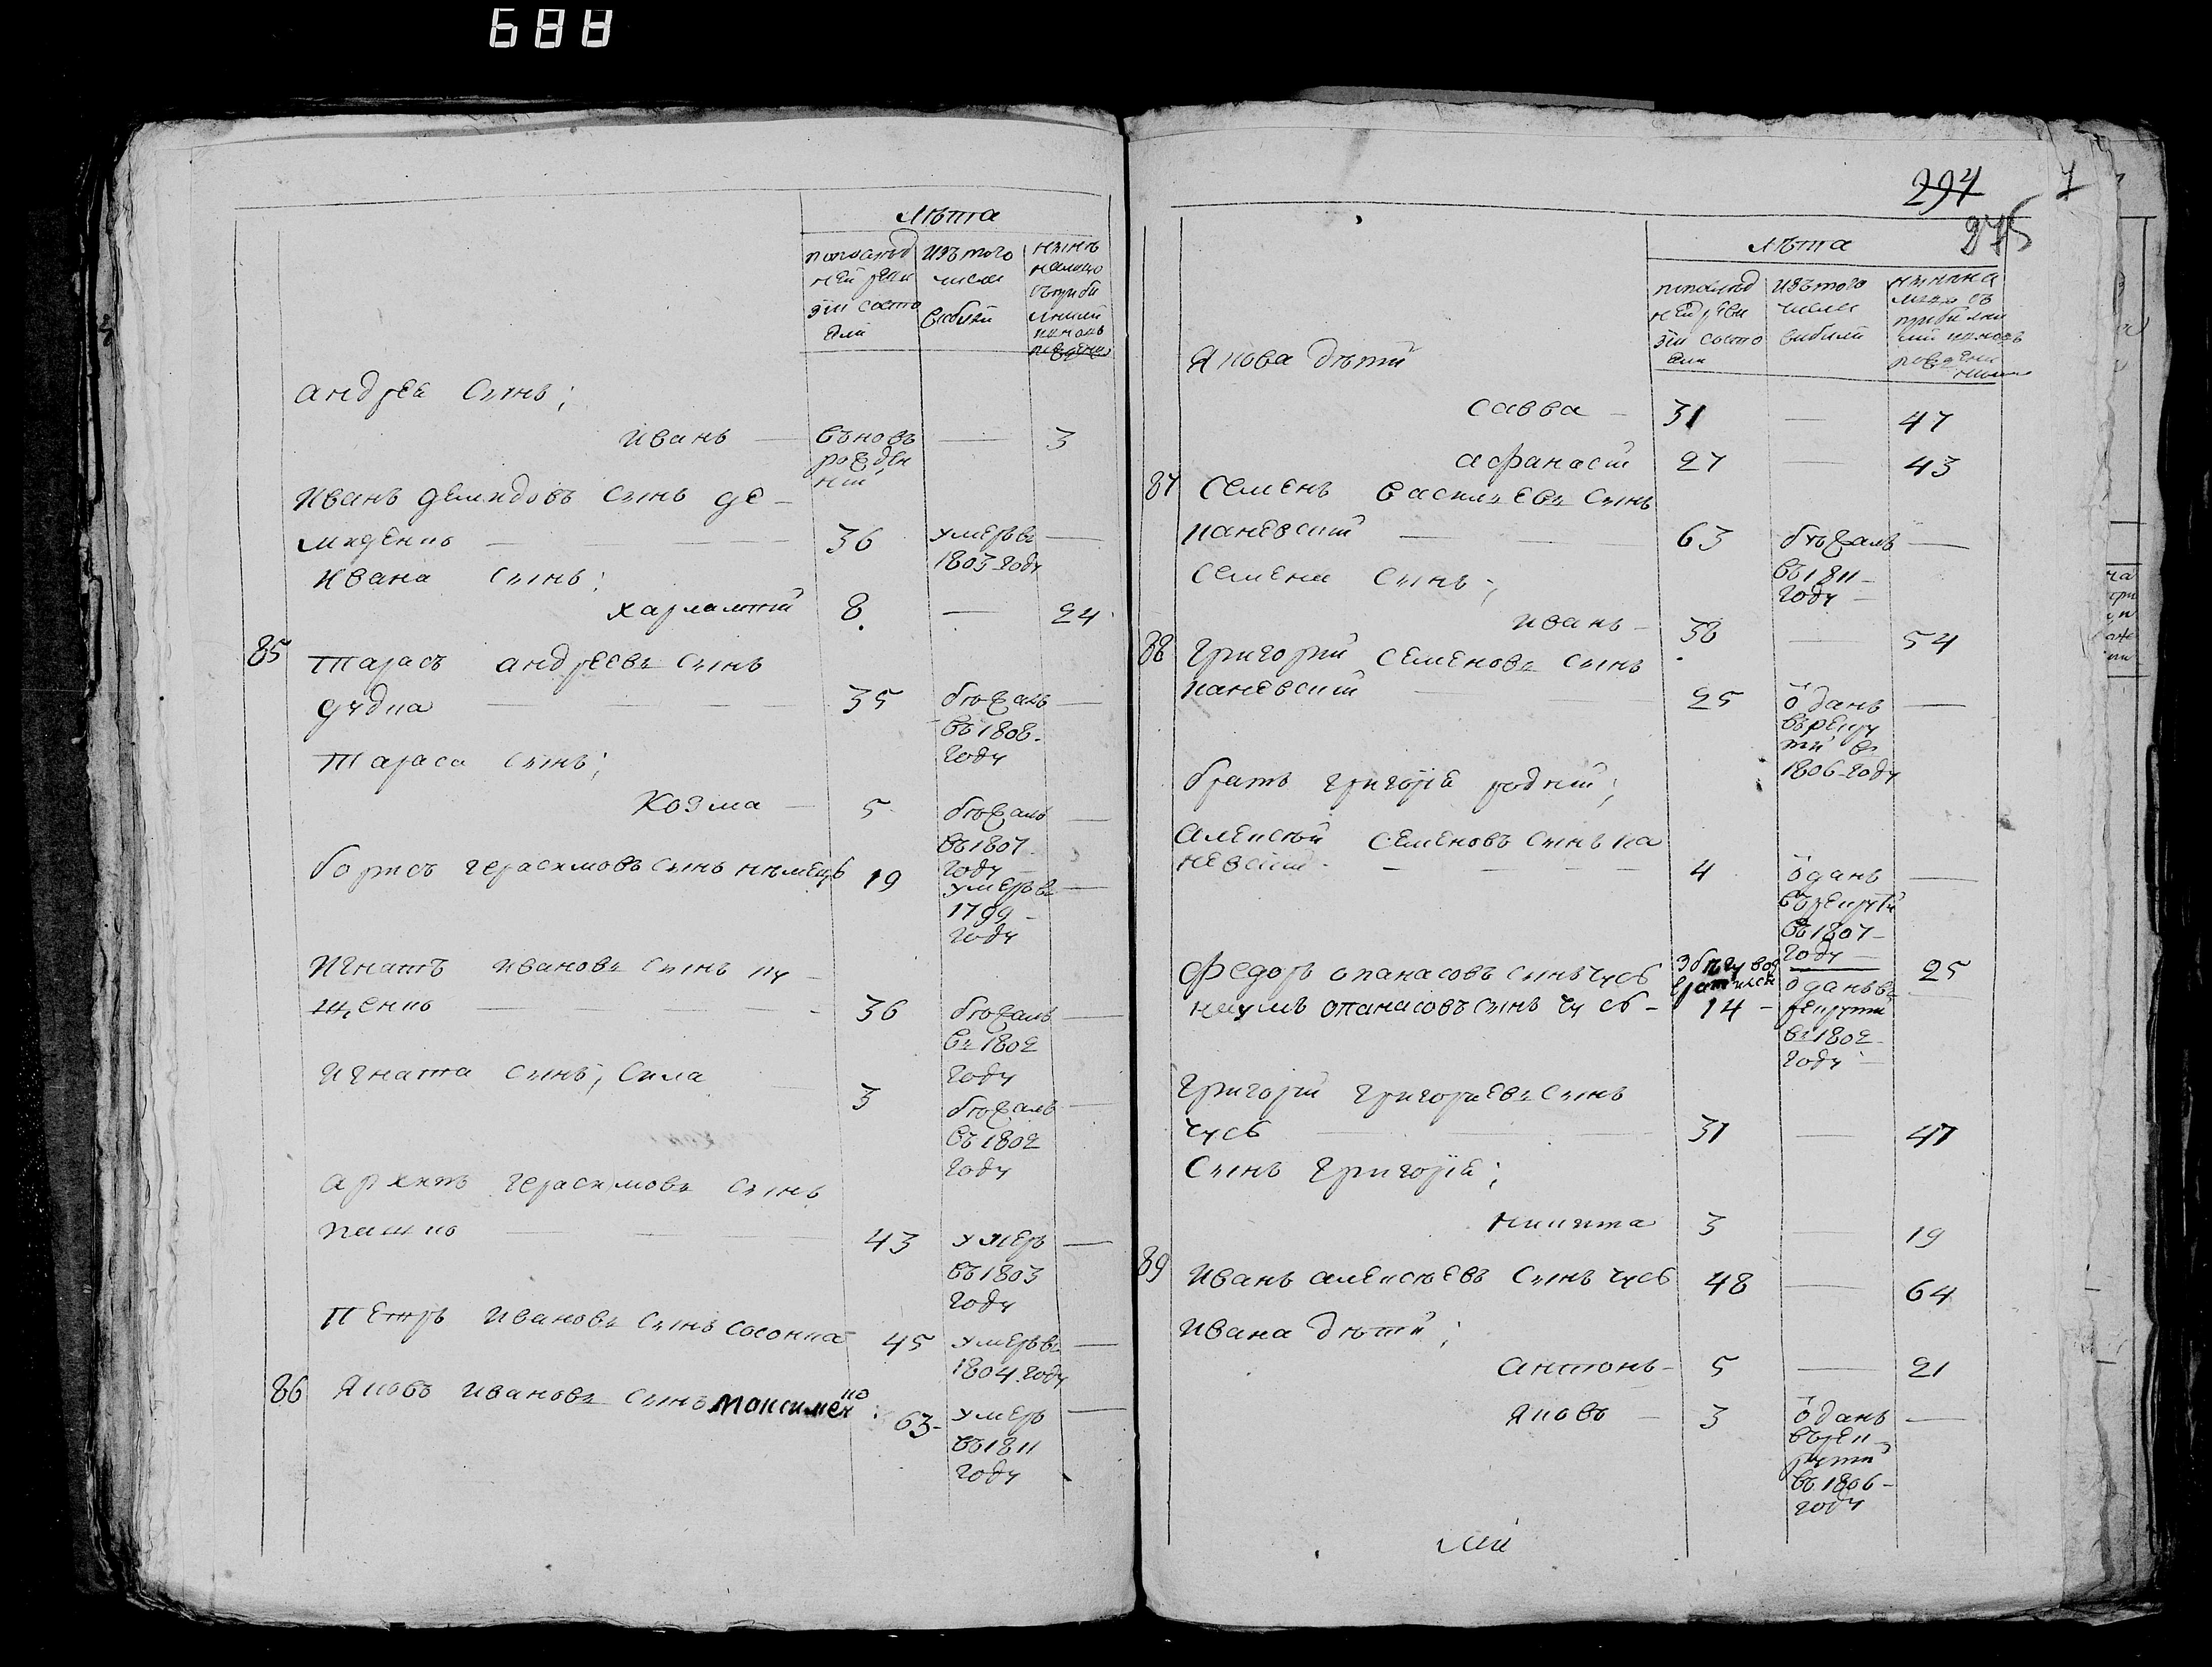 688
лѣта
попослѣд изътого нынѣ
ней реви числа налицо
зіи состо выбыли съприбы
яли лыми
андрея сынъ;
иванъ — вьновь — 3
рожден
ній
иванъ демидовъ сынъ де-
миденко — 36 умеръ въ —
1803 году
ивана сынъ:
харлампій 8. — 24
85 тарасъ андреевъ сынъ
дудка — 35 бѣжалъ —
въ 1808
году
тараса сынъ;
козма — 5 бѣжалъ —
въ 1807
году
борисъ герасимовъ сынъ нѣмецъ 19 умеръ въ —
1799
году
игнатъ ивановъ сынъ ку-
щенко — 36 бѣжалъ —
въ 1802
году
игната сынъ; сила 3 бѣжалъ —
въ 1802
году
архипъ герасимовъ сынъ
пашко — 43 умеръ —
въ 1803
году
петръ ивановъ сынъ сосонка 45 умеръ въ —
1804 году
86 яковъ ивановъ сынъ максименко 63- умеръ —
въ 1811
году
294 7
275
лѣта
попослѣд изътого нынѣна
ней реви числа лицо съ
зіи состо выбыли прибылы
яли ми и вновь
рожденны
ными
якова дѣти
савва — 31 — 47
афанасій 27 — 43
87 семенъ васильевъ сынъ
каневскій — 63 бѣжалъ —
въ 1811
году
семена сынъ;
иванъ — 38 — 54
88 григорій семеновъ сынъ
каневскій 25 ѿданъ —
върекру
ти въ
1806 году
братъ григорія родный;
алексѣй семеновъ сынъ ка
невскій — 4 ѿданъ —
върекруты
въ 1807
году
федоръ опанасовъ сынъ чубъ збѣгу воз 25
вратился
наумъ опанасовъ сынъ чубъ — 14 — ѿданъ въ
рекруты
въ 1802
году
григорій григорьевъ сынъ
чубъ — 31 — 47
сынъ григорія;
никита 3 — 19
89 иванъ алексѣевъ сынъ чубъ 48 — 64
ивана дѣти;
антонъ — 5 — 21
яковъ — 3 ѿданъ —
върек
руты
въ 1806
году
ми